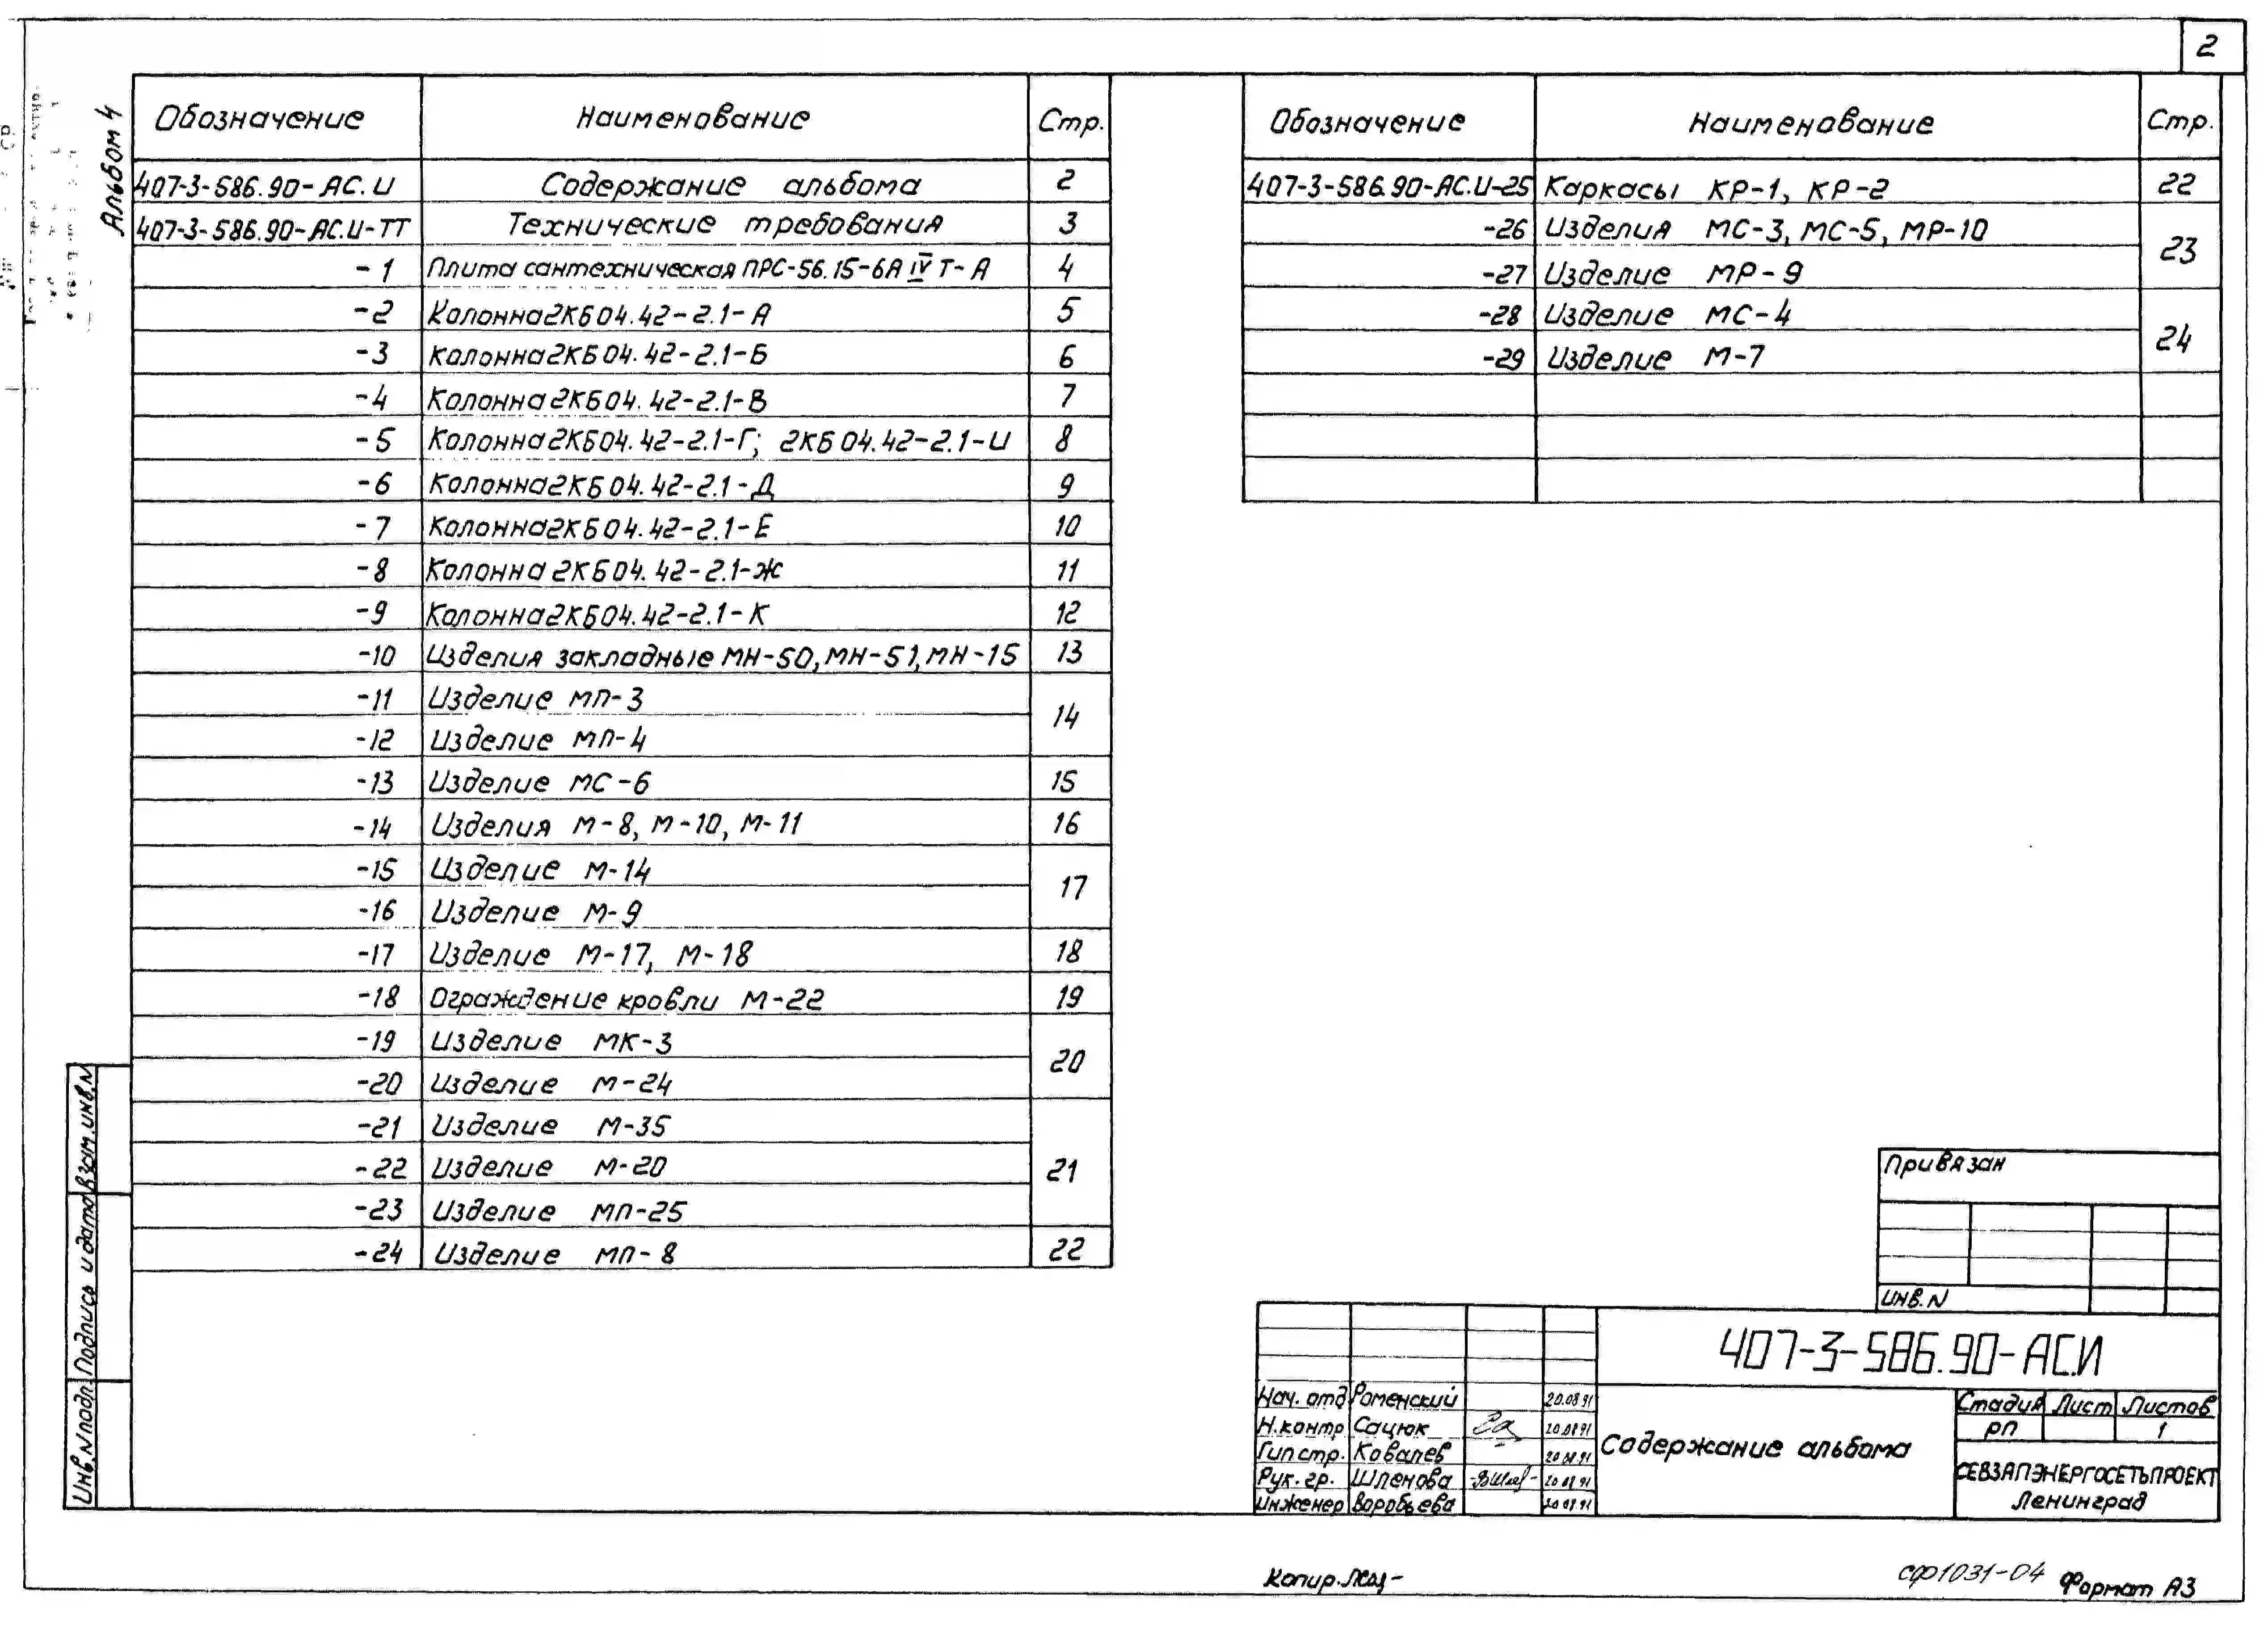 2
Альбом 4
Обозначение Наименование Стр.
407-3-586.90-АС.И Содержание альбома 2
407-3-586.90-АС.И-ТТ Технические требования 3
-1 Плита сантехническая ПРС-56.15-6А IV Т-А 4
-2 Колонна 2КБ04.42-2.1-А 5
-3 Колонна 2КБ04.42-2.1-Б 6
-4 Колонна 2КБ04.42-2.1-В 7
-5 Колонна 2КБ04.42-2.1-Г; 2КБ04.42-2.1-И 8
-6 Колонна 2КБ04.42-2.1-Д 9
-7 Колонна 2КБ04.42-2.1-Е 10
-8 Колонна 2КБ04.42-2.1-Ж 11
-9 Колонна 2КБ04.42-2.1-К 12
-10 Изделия закладные МН-50, МН-51, МН-15 13
-11 Изделие МП-3 14
-12 Изделие МП-4
-13 Изделие МС-6 15
-14 Изделия М-8, М-10, М-11 16
-15 Изделие М-14 17
-16 Изделие М-9
-17 Изделие М-17, М-18 18
-18 Ограждение кровли М-22 19
-19 Изделие МК-3 20
-20 Изделие М-24
-21 Изделие М-35 21
-22 Изделие М-20
-23 Изделие МП-25
-24 Изделие МП-8 22
Обозначение Наименование Стр.
407-3-586.90-АС.И-25 Каркасы КР-1, КР-2 22
-26 Изделия МС-3, МС-5, МР-10 23
-27 Изделие МР-9
-28 Изделие МС-4 24
-29 Изделие М-7
Взам.инв.N
Подпись и дата
Инв.N подл.
Привязан
Инв.N
407-3-586.90-АС.И
Нач. отд Роменский 20.08.91
Н.контр Сацюк 20.08.91
Гип стр. Ковалев 20.08.91
Рук. гр. Шленова 20.08.91
Инженер Воробьева 20.08.91
Содержание альбома
Стадия Лист Листов
РП 1
СЕВЗАПЭНЕРГОСЕТЬПРОЕКТ
Ленинград
Копир.
сф1031-04
Формат А3